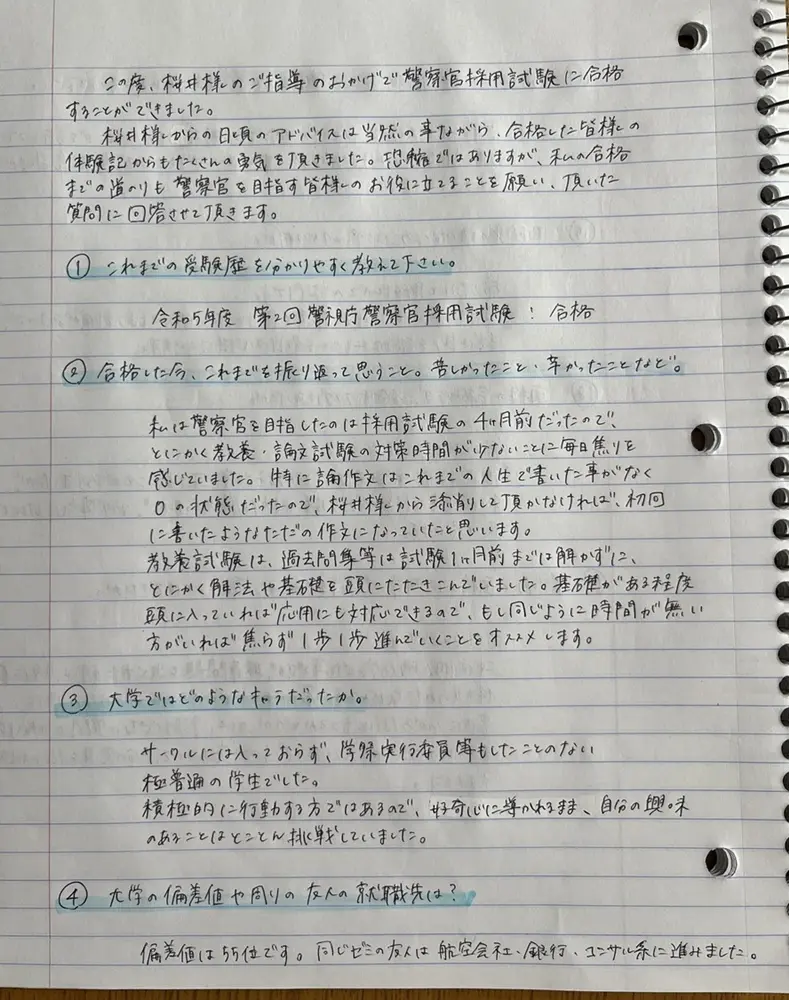 この度、桜井様のご指導のおかげで警察官採用試験に合格
することができました。
桜井様からの日頃のアドバイスは当然の事ながら、合格した皆様の
体験記からもたくさんの勇気を頂きました。恐縮ではありますが、私の合格
までの道のりも警察官を目指す皆様のお役に立てることを願い、頂いた
質問に回答させて頂きます。
① これまでの受験歴を分かりやすく教えて下さい。
令和5年度 第2回警視庁警察官採用試験：合格
② 合格した今、これまでを振り返って思うこと。苦しかったこと・辛かったことなど。
私は警察官を目指したのは採用試験の4ヶ月前だったので、
とにかく教養・論文試験の対策時間が少ないことに毎日焦りを
感じていました。特に論作文はこれまでの人生で書いた事がなく
0の状態だったので、桜井様から添削して頂かなければ、初回
に書いたようなただの作文になっていたと思います。
教養試験は、過去問集等は試験1ヶ月前までは解かずに、
とにかく解法や基礎を頭にたたきこんでいました。基礎がある程度
頭に入っていれば応用にも対応できるので、もし同じように時間が無い
方がいれば焦らず1歩1歩進んでいくことをオススメします。
③ 大学ではどのようなキャラだったか。
サークルには入っておらず、学祭実行委員等もしたことのない
極普通の学生でした。
積極的に行動する方ではあるので、好奇心に導かれるまま、自分の興味
のあることはとことん挑戦していました。
④ 大学の偏差値や周りの友人の就職先は？
偏差値は55位です。同じゼミの友人は航空会社・銀行・コンサル系に進みました。